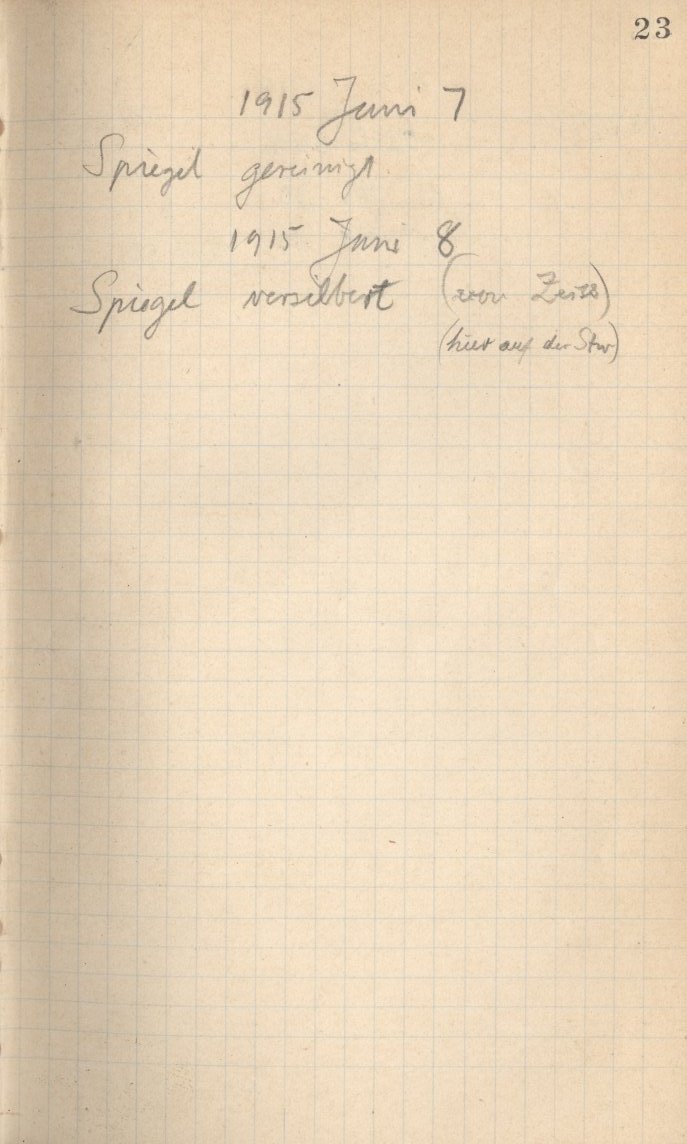 23
1915 Juni 7
Spiegel gereinigt.
1915 Juni 8
Spiegel versilbert (von Zeiss)
(hier auf der Stw)